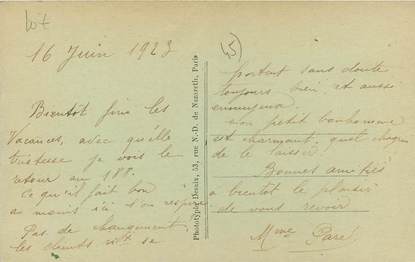 16 Juin 1923
Bientôt fini les
Vacances, avec quelle
tristesse je vois le
retour au 188.
Ce qu'il fait bon
au moins ici l'on respire
Pas de changement
les clients se
Phototypie Desaix, 53, rue N.-D. de Nazareth, Paris
45
portent sans doute
toujours bien, et aussi
ennuyeux.
Mon petit bonhomme
est charmant, quel chagrin
de le laisser.
Bonnes amitiés
a bientôt le plaisir
de vous revoir
Mme Paré